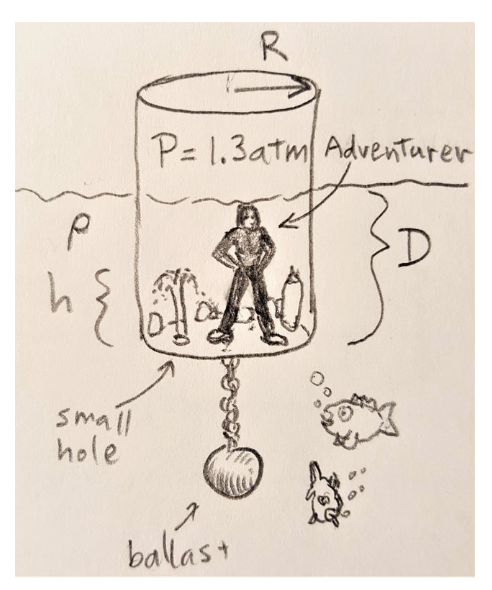 R
P = 1.3atm
Adventurer
ρ
D
h
small
hole
ballast